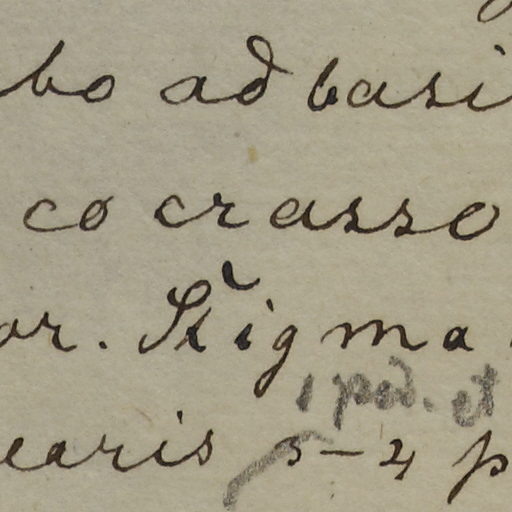 bo ad basi
co crasso
or. Stigma
1 ped. et
earis 5-4 p